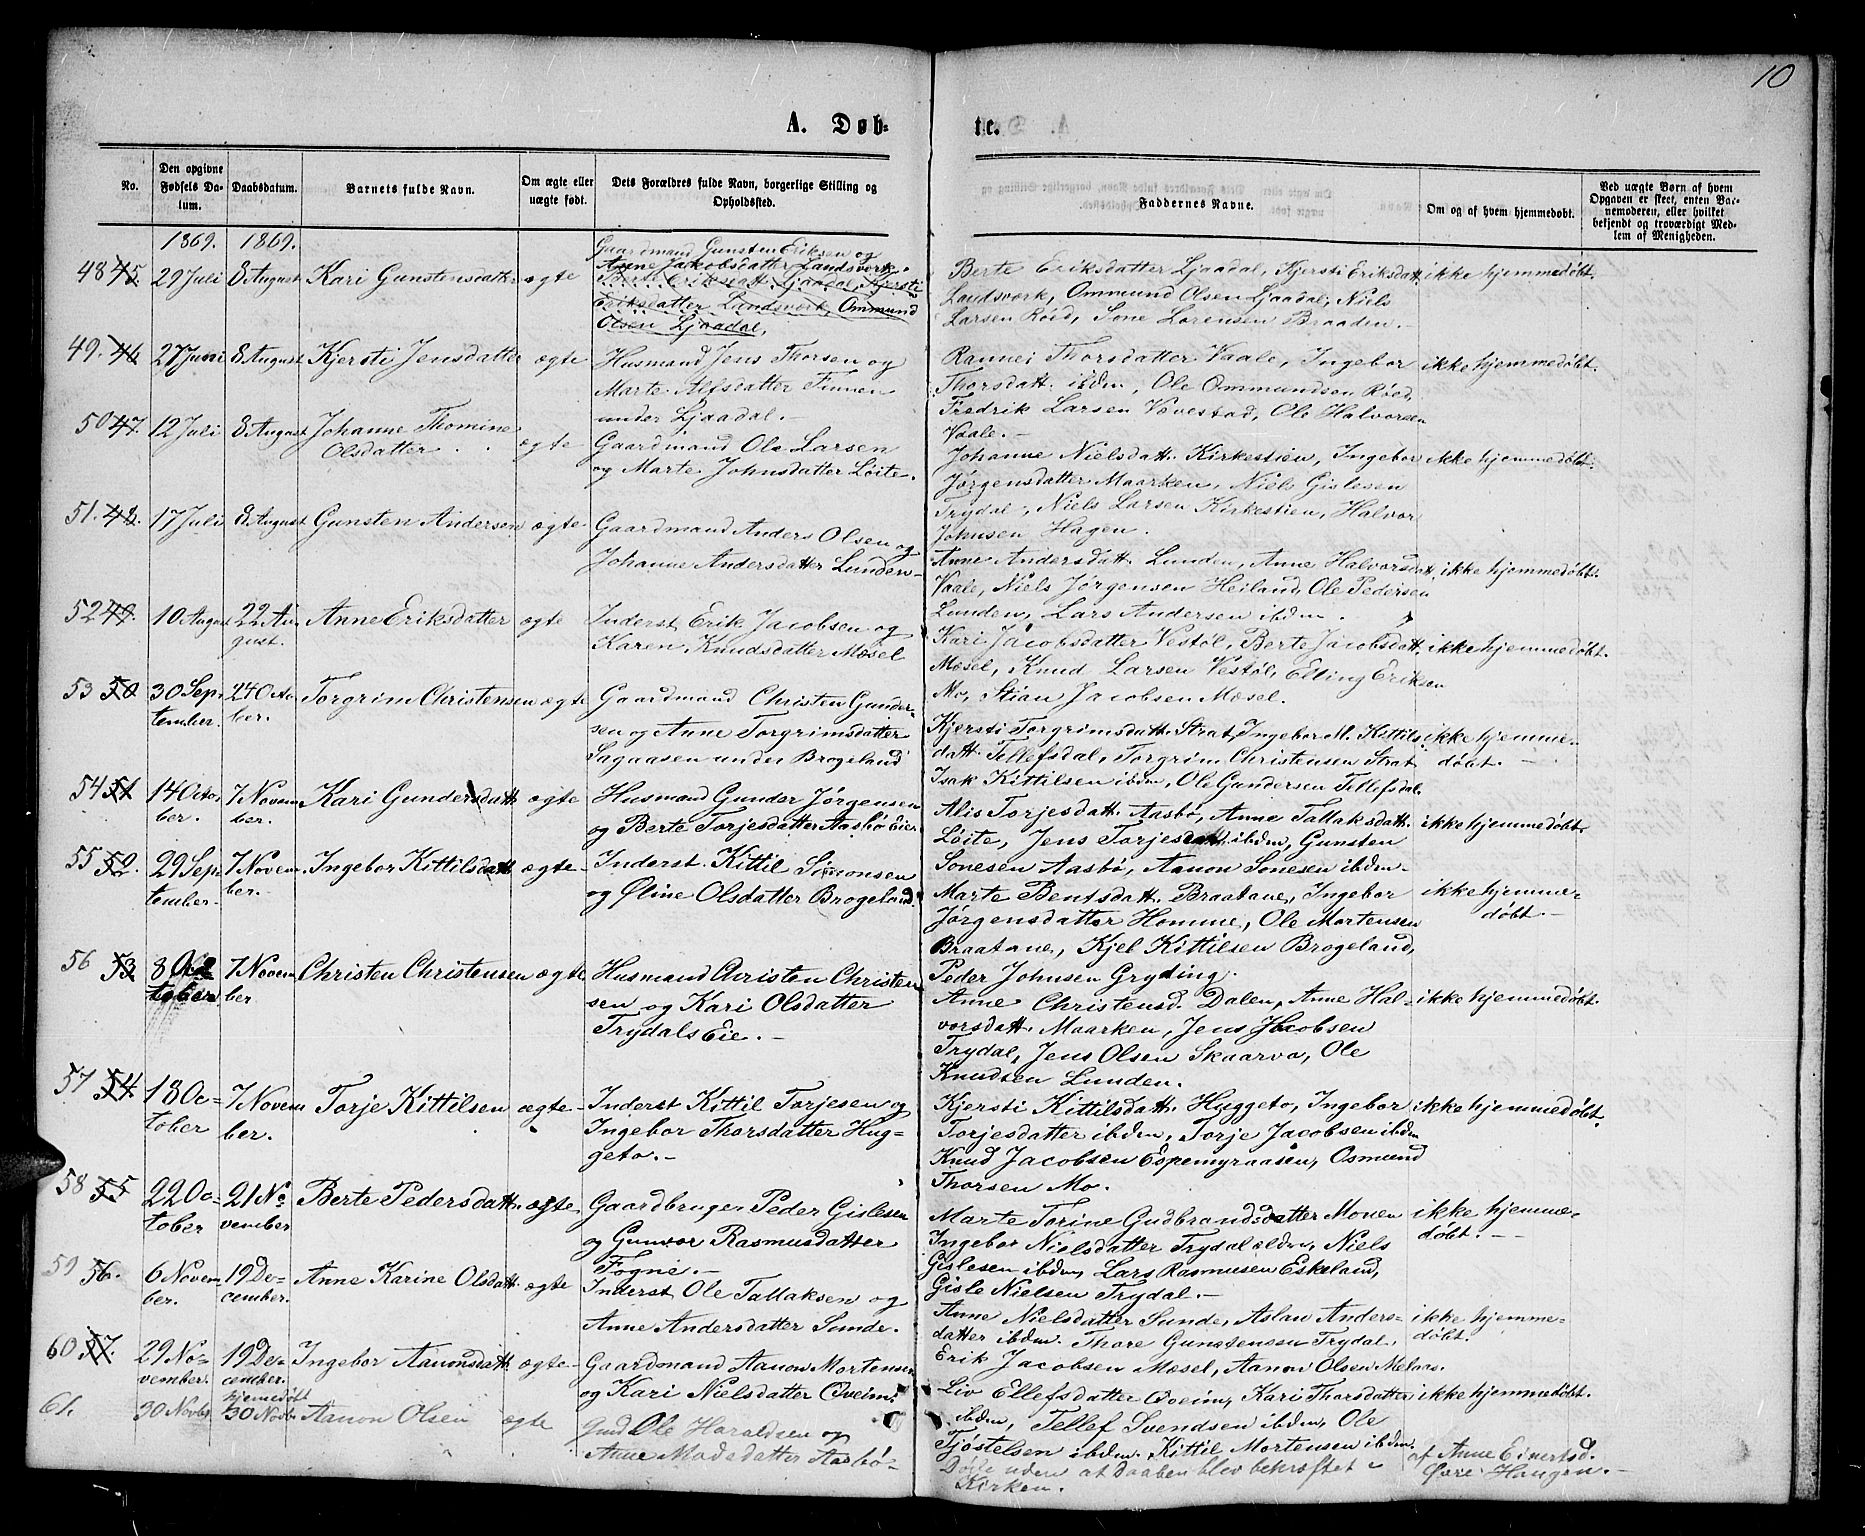 10
A. Døb-
te.
No.
Den opgivne Fødsels Datum.
Daabsdatum.
Barnets fulde Navn.
Om ægte eller uægte født.
Dets Forældres fulde Navn, borgerlige Stilling og Opholdssted.
Faddernes Navne.
Om og af hvem hjemmedøbt.
Ved uægte Børn af hvem Opgaven er skeet, enten Barnemoderen, eller hvilket bekjendt og troværdigt Medlem af Menigheden.
1869. 1869.
48 45. 29 Juli 8 August Kari Gunstensdatter ægte
Gaardmand Gunsten Eriksen og
Anne Jackobsdatter Landsverk.
Berte Eriksdatt. Ljaadal, Kjersti
Eriksdatter Landsverk, Ommund
Olsen Ljaadal,
Berte Eriksdatter Ljaadal, Kjersti Eriksdatt.
Landsverk, Ommund Olsen Ljaadal, Niels
Larsen Röed, Sone Lorensen Braaden.-
ikke hjemmedøbt.
49. 46 27 Juni 8 August Kjersti Jensdatter ægte
Husmand Jens Thorsen og
Marte Alfsdatter Finnen
under Ljaadal.-
Rannei Thorsdatter Vaale, Ingebor
Thorsdatt. ibdm, Ole Ommundsen Röed,
Fredrik Larsen Vovestad, Ole Halvorsen
Vaale.-
ikke hjemmedøbt.
50 47. 12 Juli 8 August Johanne Thomine
Olsdatter . . ægte
Gaardmand Ole Larsen
og Marte Johnsdatter Löite.
Johanne Nielsdatt. Kirkestien, Ingebor
Jørgensdatter Maarken, Niels Gislesen
Trydal, Niels Larsen Kirkestien, Halvor
Johnsen Hagen.
ikke hjemmedøbt.
51. 48. 17 Juli 8 August Gunsten Andersen ægte
Gaardmand Anders Olsen og
Johanne Andersdatter Lunden-
Anne Andersdatt. Lunden, Anne Halvorsdatt.
Vaale, Niels Jørgensen Heiland, Ole Pedersen
Lunden, Lars Andersen ibdm.
ikke hjemmedøbt.
52 49. 10 August 22 Au
gust. Anne Eriksdatter ægte
Inderst Erik Jacobsen og
Karen Knudsdatter Mæsel
Kari Jacobsdatter Vestöl, Berte Jacobsdatt.
Mæsel, Knud Larsen Vestöl, Elling Eriksen
Mo, Stian Jacobsen Mæsel.
ikke hjemmedøbt.
53 50 30 Sep
tember. 24 Octo
ber. Torgrim Christensen ægte
Gaardmand Christen Gunder-
sen og Anne Torgrimsdatter
Sagaasen under Brogeland
Kjersti Torgrimsdatt. Strat, Ingebor M. Kittils
datt. Tellefsdal, Torgrim Christensen Strat
Isak Kittilsen ibdm, Ole Gundersen Tellefsdal.
ikke hjemme-
døbt. -
54 51 14 Octo
ber. 7 Novem
ber. Kari Gundersdatt. ægte
Husmand Gunder Jørgensen
og Berte Torjesdatter Aasbø Eie.
Alis Torjesdatt. Aasbø, Anne Tallaksdatt.
Löite, Jens Torjesdatt. ibdm, Gunsten
Sonesen Aasbø, Aanon Sonesen ibdm.
ikke hjemmedøbt.
55 52. 29 Sep
tember. 7 Novem
ber. Ingebor Kittilsdatt. ægte-
Inderst Kittil Simonsen
og Øline Olsdatter Brogeland.
Marte Bentsdatt. Braatane, Ingebor
Jørgensdatter Homme, Ole Mortensen
Braatane, Kjel Kittilsen Brogeland,
Peder Johnsen Gryding.
ikke hjemme-
døbt.-
56 53 8 Oc
tober 7 Novem
ber Christen Christensen ægte
Husmand Christen Christen
sen og Kari Olsdatter
Trydals Eie.-
Anne Christensd. Dalen, Anne Hal-
vorsdatt. Maarken, Jens Jacobsen
Trydal, Jens Olsen Skaarva, Ole
Knudsen Lunden.
ikke hjemmedøbt.
57 54 18 Oc-
tober 7 Novem
ber. Torje Kittilsen ægte-
Inderst Kittil Torjesen og
Ingebor Thorsdatter Hug-
geto.-
Kjersti Kittilsdatt. Huggeto, Ingebor
Torjesdatter ibdm, Torje Jacobsen ibdm
Knud Jacobsen Espemyraasen, Osmund
Thorsen Mo.
ikke hjemmedøbt.
58 55 22 Oc-
tober 21 No-
vember Berte Pedersdatt. ægte.
Gaardbruger Peder Gislesen
og Gunvor Rasmusdatter
Fogne.-
Marte Torine Gudbrandsdatter Monen
Ingebor Nielsdatter Trydal ældre, Niels
Gislesen ibdm, Lars Rasmusen Eskeland,
Gisle Nielsen Trydal.-
ikke hjemme-
døbt.-
59 56. 6 Novem
ber. 19 De-
cember. Anne Karine Olsdatt. ægte
Inderst Ole Tallaksen og
Anne Andersdatter Sunde.
Anne Nielsdatter Sunde, Aslau Anders-
datter ibdm. Thore Gunstensen Trydal.
Erik Jacobsen Mæsel, Aanon Olsen Melaas.
ikke hjemme-
døbt.
60 57. 29 No-
vember. 19 De-
cember. Ingebor Aanonsdatt. ægte-
Gaardmand Aanon Mortensen
og Kari Nielsdatter Qveim.
Liv Ellefsdatter Qveim, Kari Thorsdatter
ibdm, Tellef Svendsen ibdm, Ole
Tjöstelsen ibdm. Kittil Mortensen ibdm.
ikke hjemmedøbt.
61. 30 Novbr hjemedöbt
30 Novbr Aanon Olsen ægte
Gmd Ole Haraldsen og
Anne Madsdatter Aasbø-
Døde uden at daaben blev bekræftet i
Kirken.
af Anne Einertsd.
Øvre Haugen.-